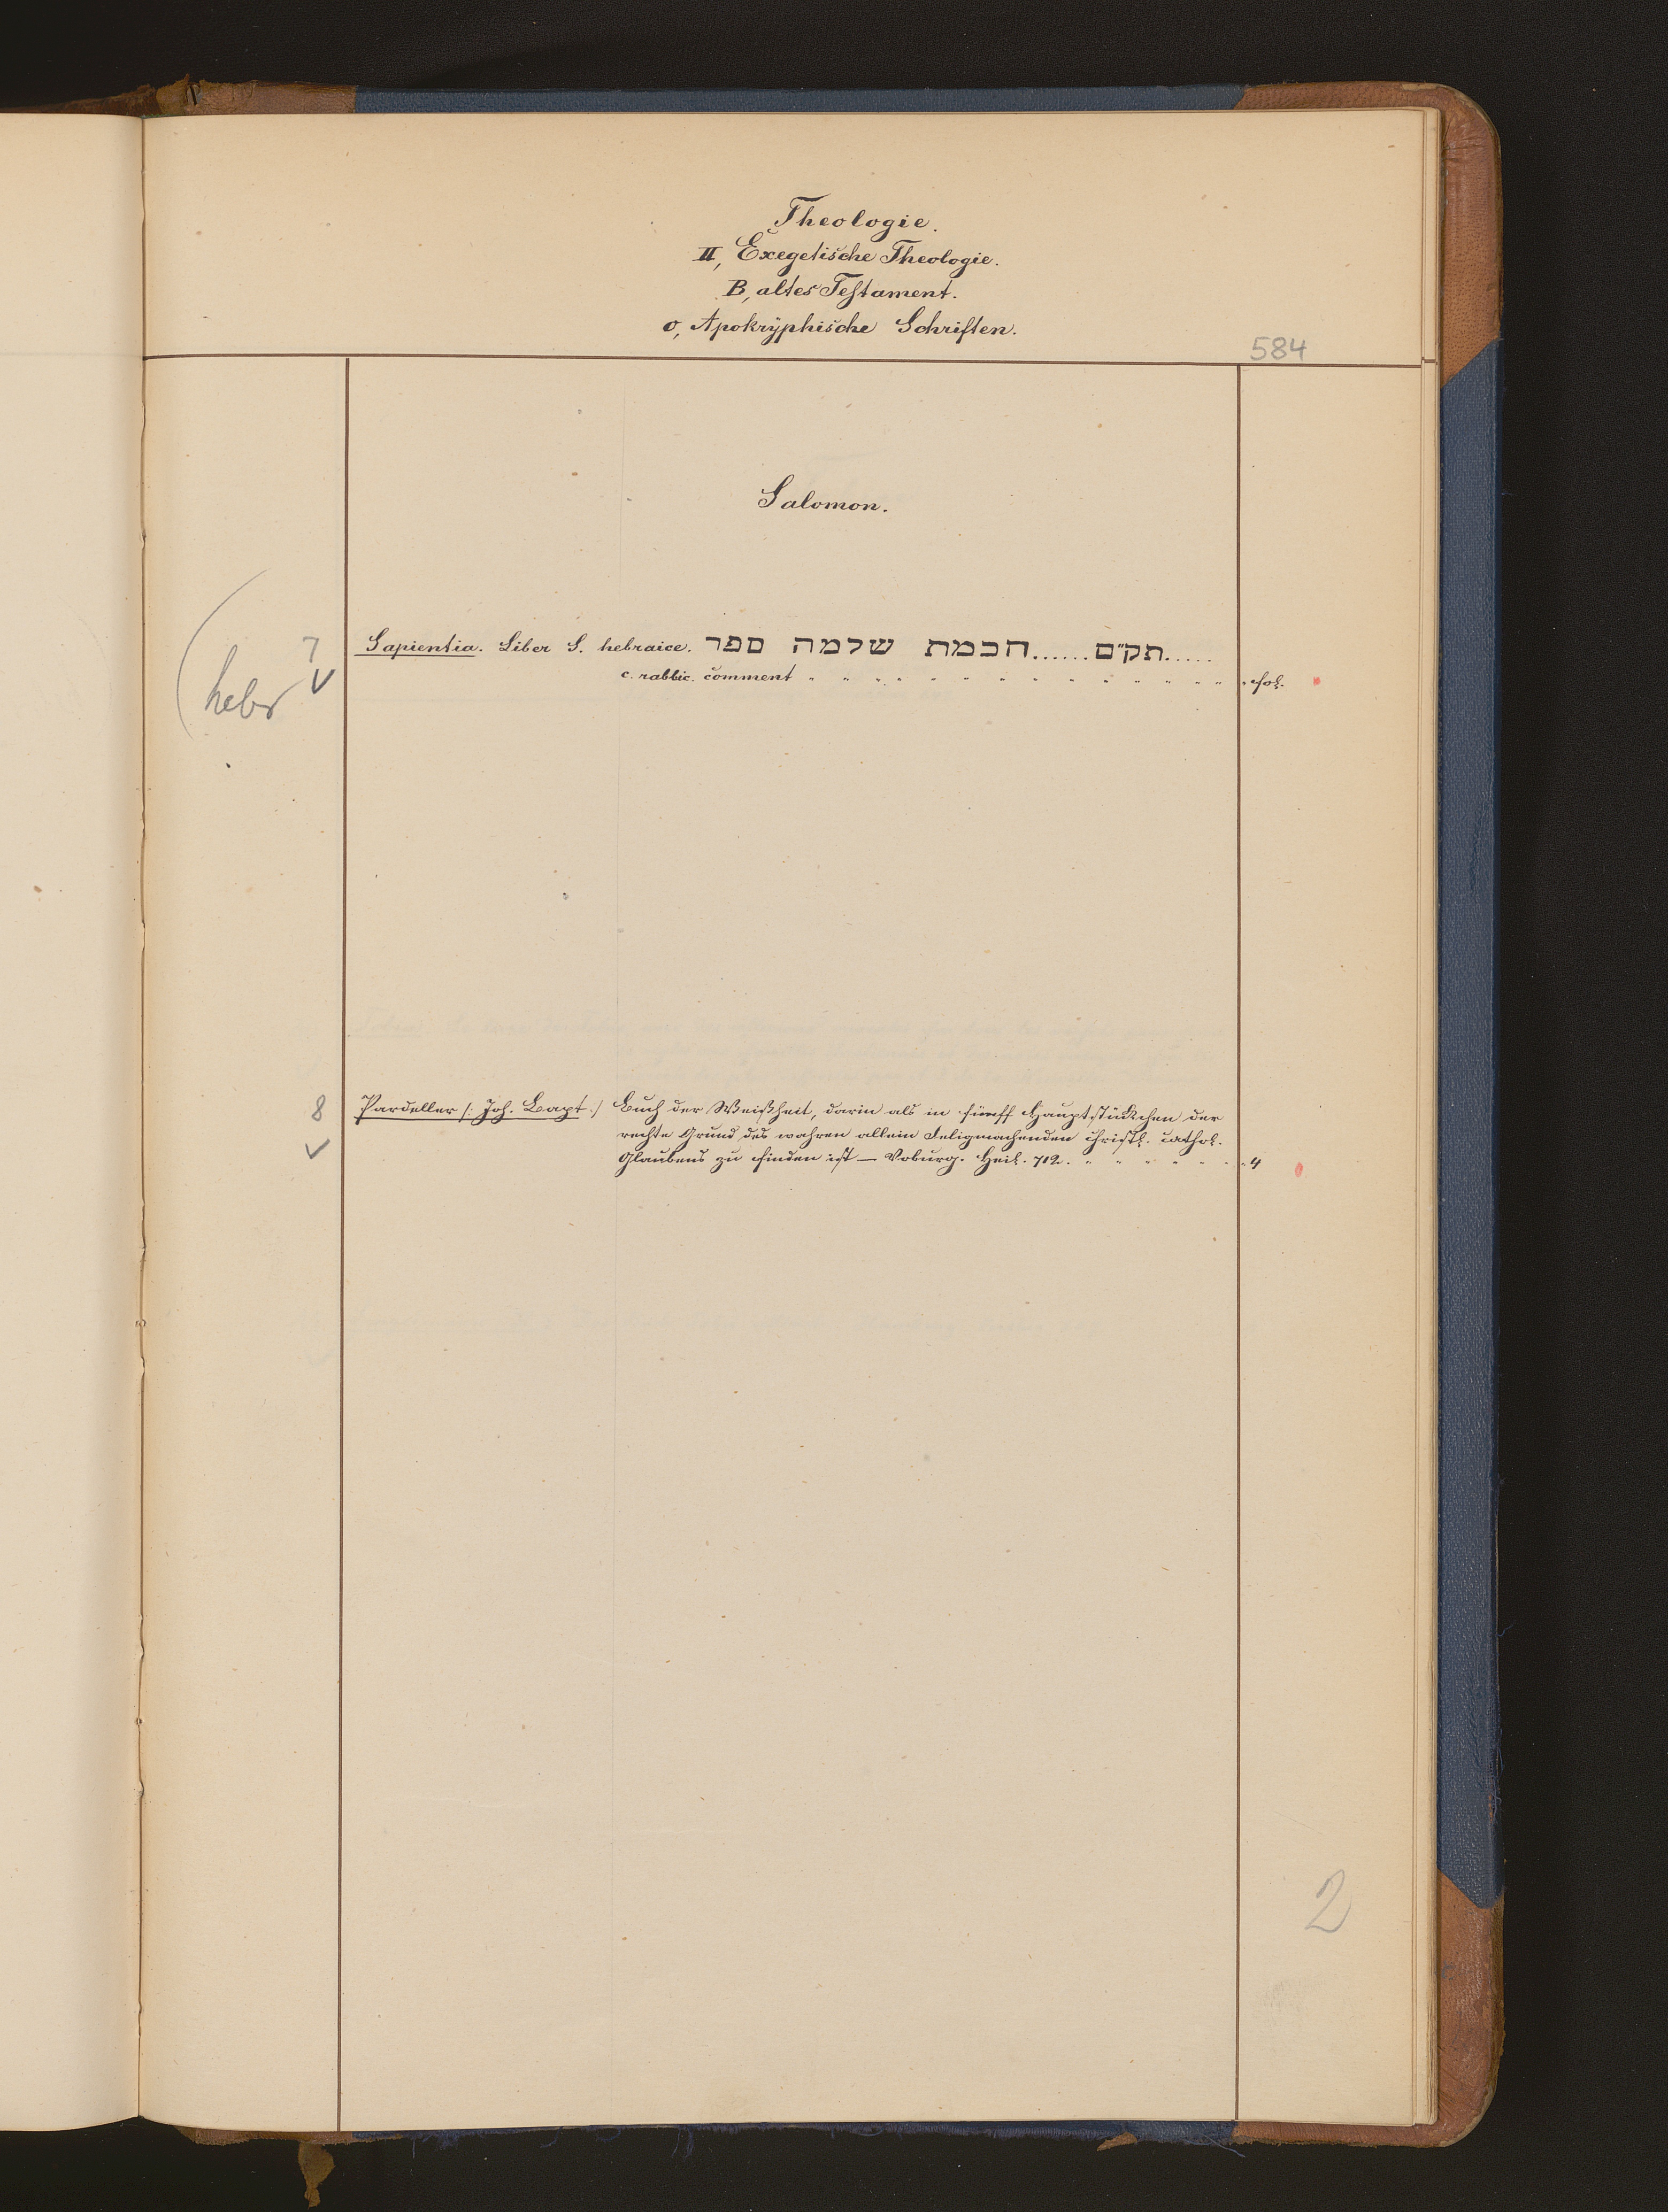 Theologie.
II, Exegetische Theologie.
B, altes Testament.
o, Apokryphische Schriften.
584
Salomon.
7
hebr
Sapientia. Liber S. hebraice. ספר שלמה חכמת ......תק״ם.....
c. rabbic. comment " " " " " " " " " " " " " " fol.
8
Pardeller /: Joh. Bapt :/ Buch der Weißheit, darin als in fünff Hauptstückchen der
rechte Grund des wahren allein Seligmachenden Christl. Cathol.
Glaubens zu finden ist — Heil. 712. " " " " " " " 4
2